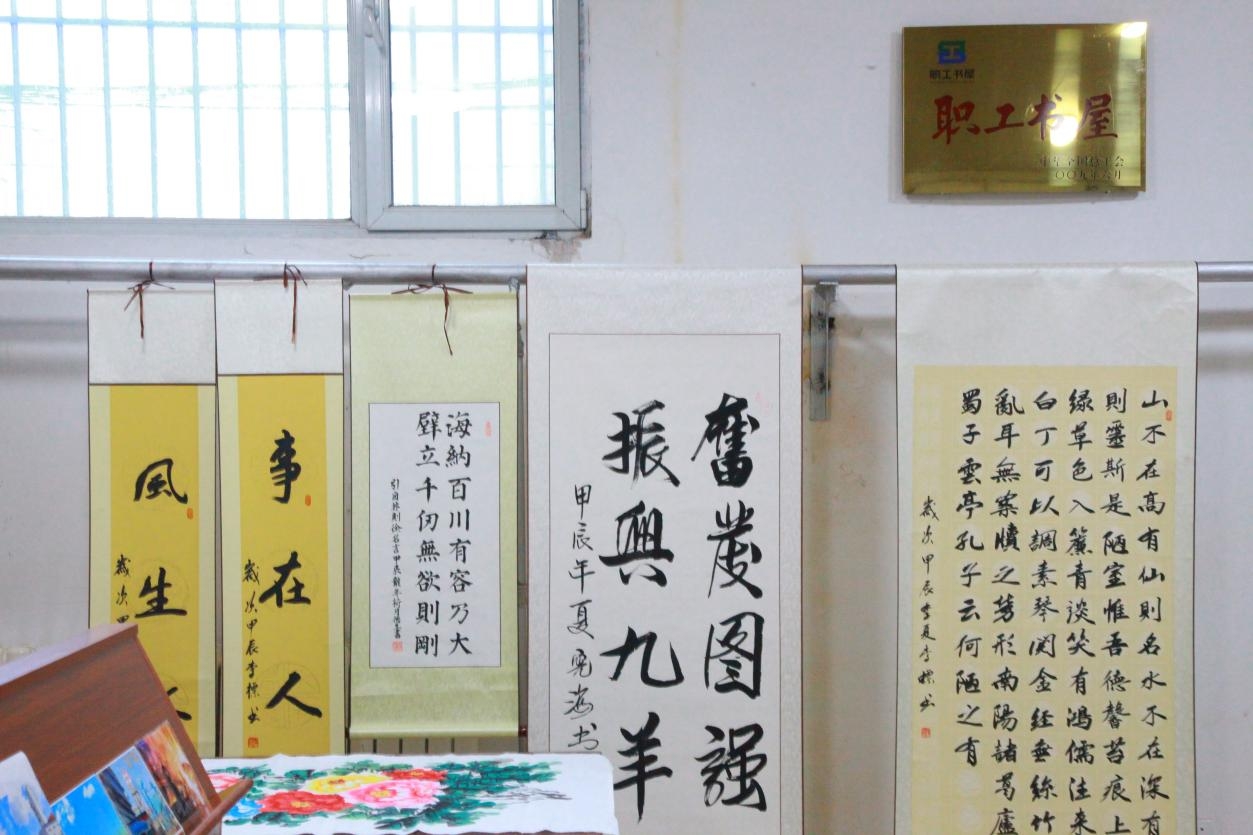 职工书屋
职工书屋
中华全国总工会
〇〇九年六月
山不在高有仙則名水不在深有
則靈斯是陋室惟吾德馨苔痕上
绿草色入簾青淡笑有鴻儒往来
白丁可以調素琴閱金经垂絲竹
亂耳無案牘之勞形南陽諸葛廬
蜀子雲亭孔子云何陋之有
歲次甲辰季夏李標书
奮發图强
振興九羊
甲辰年夏海书
海納百川有容乃大
壁立千仞無欲則剛
引自林則徐名言甲辰龍年
事在人
歲次甲辰李標书
風生
歲次甲